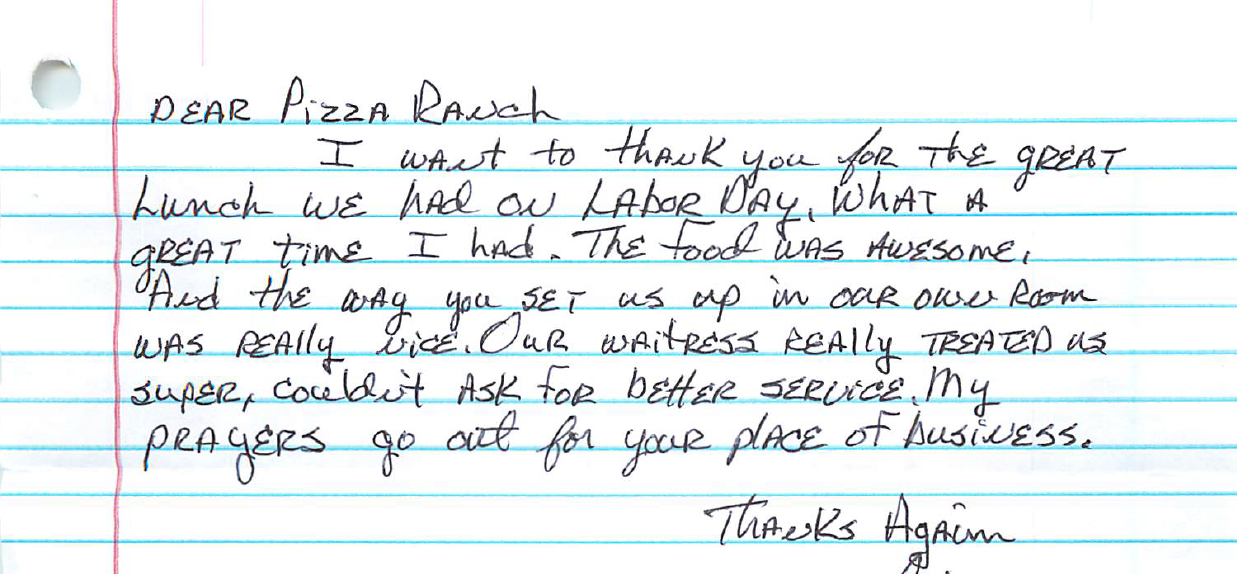 DEAR Pizza Ranch
I want to thank you for the great
Lunch we had on Labor Day, What a
great time I had. The food was awesome.
And the way you set us up in our own Room
was really nice. Our waitress really treated us
super, couldn't ask for better service. My
prayers go out for your place of business.
Thanks Again